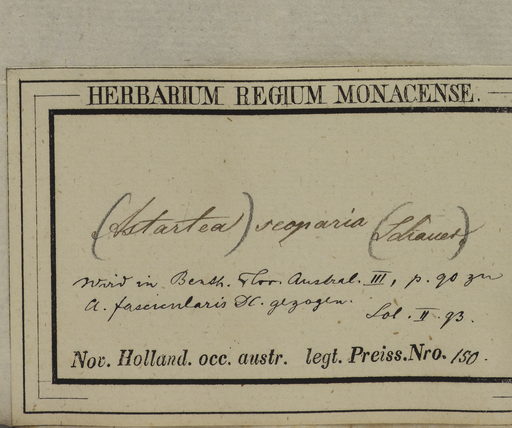 HERBARIUM REGIUM MONACENSE.
(Astartea) scoparia (Schauer)
Wird in Benth. Flor. Austral. III, p. 90 zu
A. fascicularis DC. gezogen.
Sol. II. 93.
Nov. Holland. occ. austr. legt. Preiss. Nro. 150.